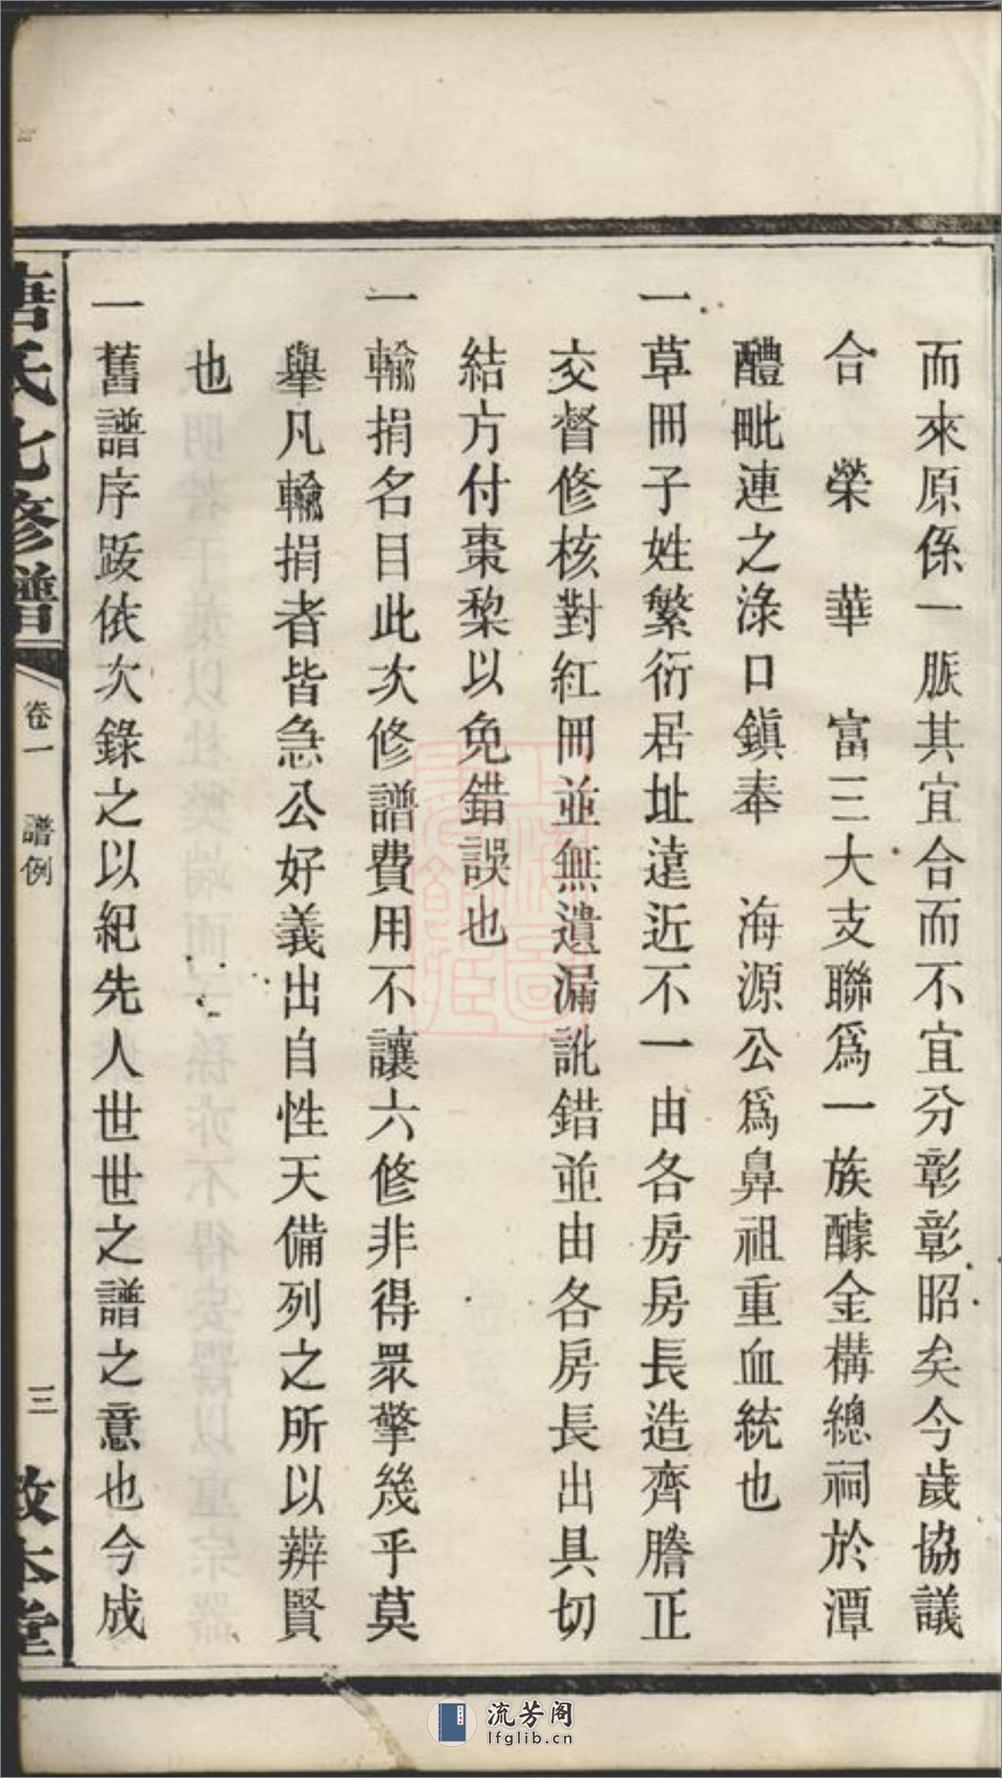 而來原係一脈其宜合而不宜分彰彰昭矣今歲協議
合　榮　華　富三大支聯爲一族醵金構總祠於潭
醴毗連之淥口鎮奉　海源公爲鼻祖重血統也
一草冊子姓繁衍居址遠近不一由各房房長造齊謄正
交督修核對紅冊並無遺漏訛錯並由各房長出具切
結方付棗棃以免錯誤也
一輸捐名目此次修譜費用不讓六修非得眾擎幾乎莫
舉凡輸捐者皆急公好義出自性天備列之所以辨賢
也
一舊譜序跋依次錄之以紀先人世世之譜之意也今成
唐氏七修譜
卷一　譜例
三
敦本堂
流芳阁
lfglib.cn